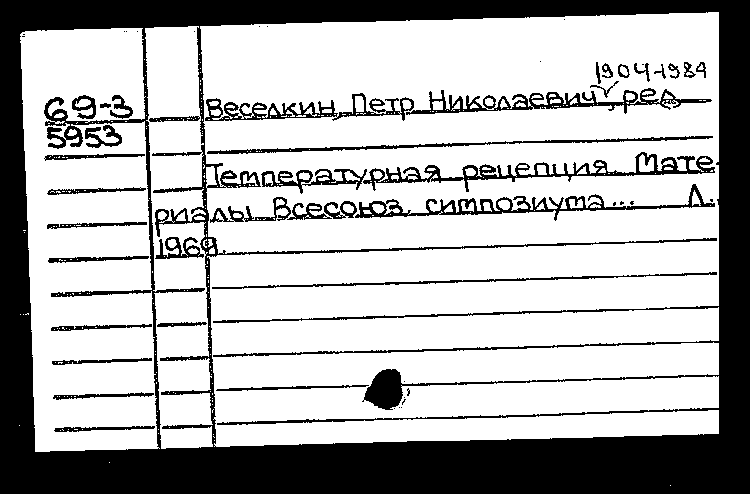 1904-1984
69-3 Веселкин, Петр Николаевич, ред.
5953
Температурная рецепция. Мате-
риалы Всесоюз. симпозиума... Л.,
1969.